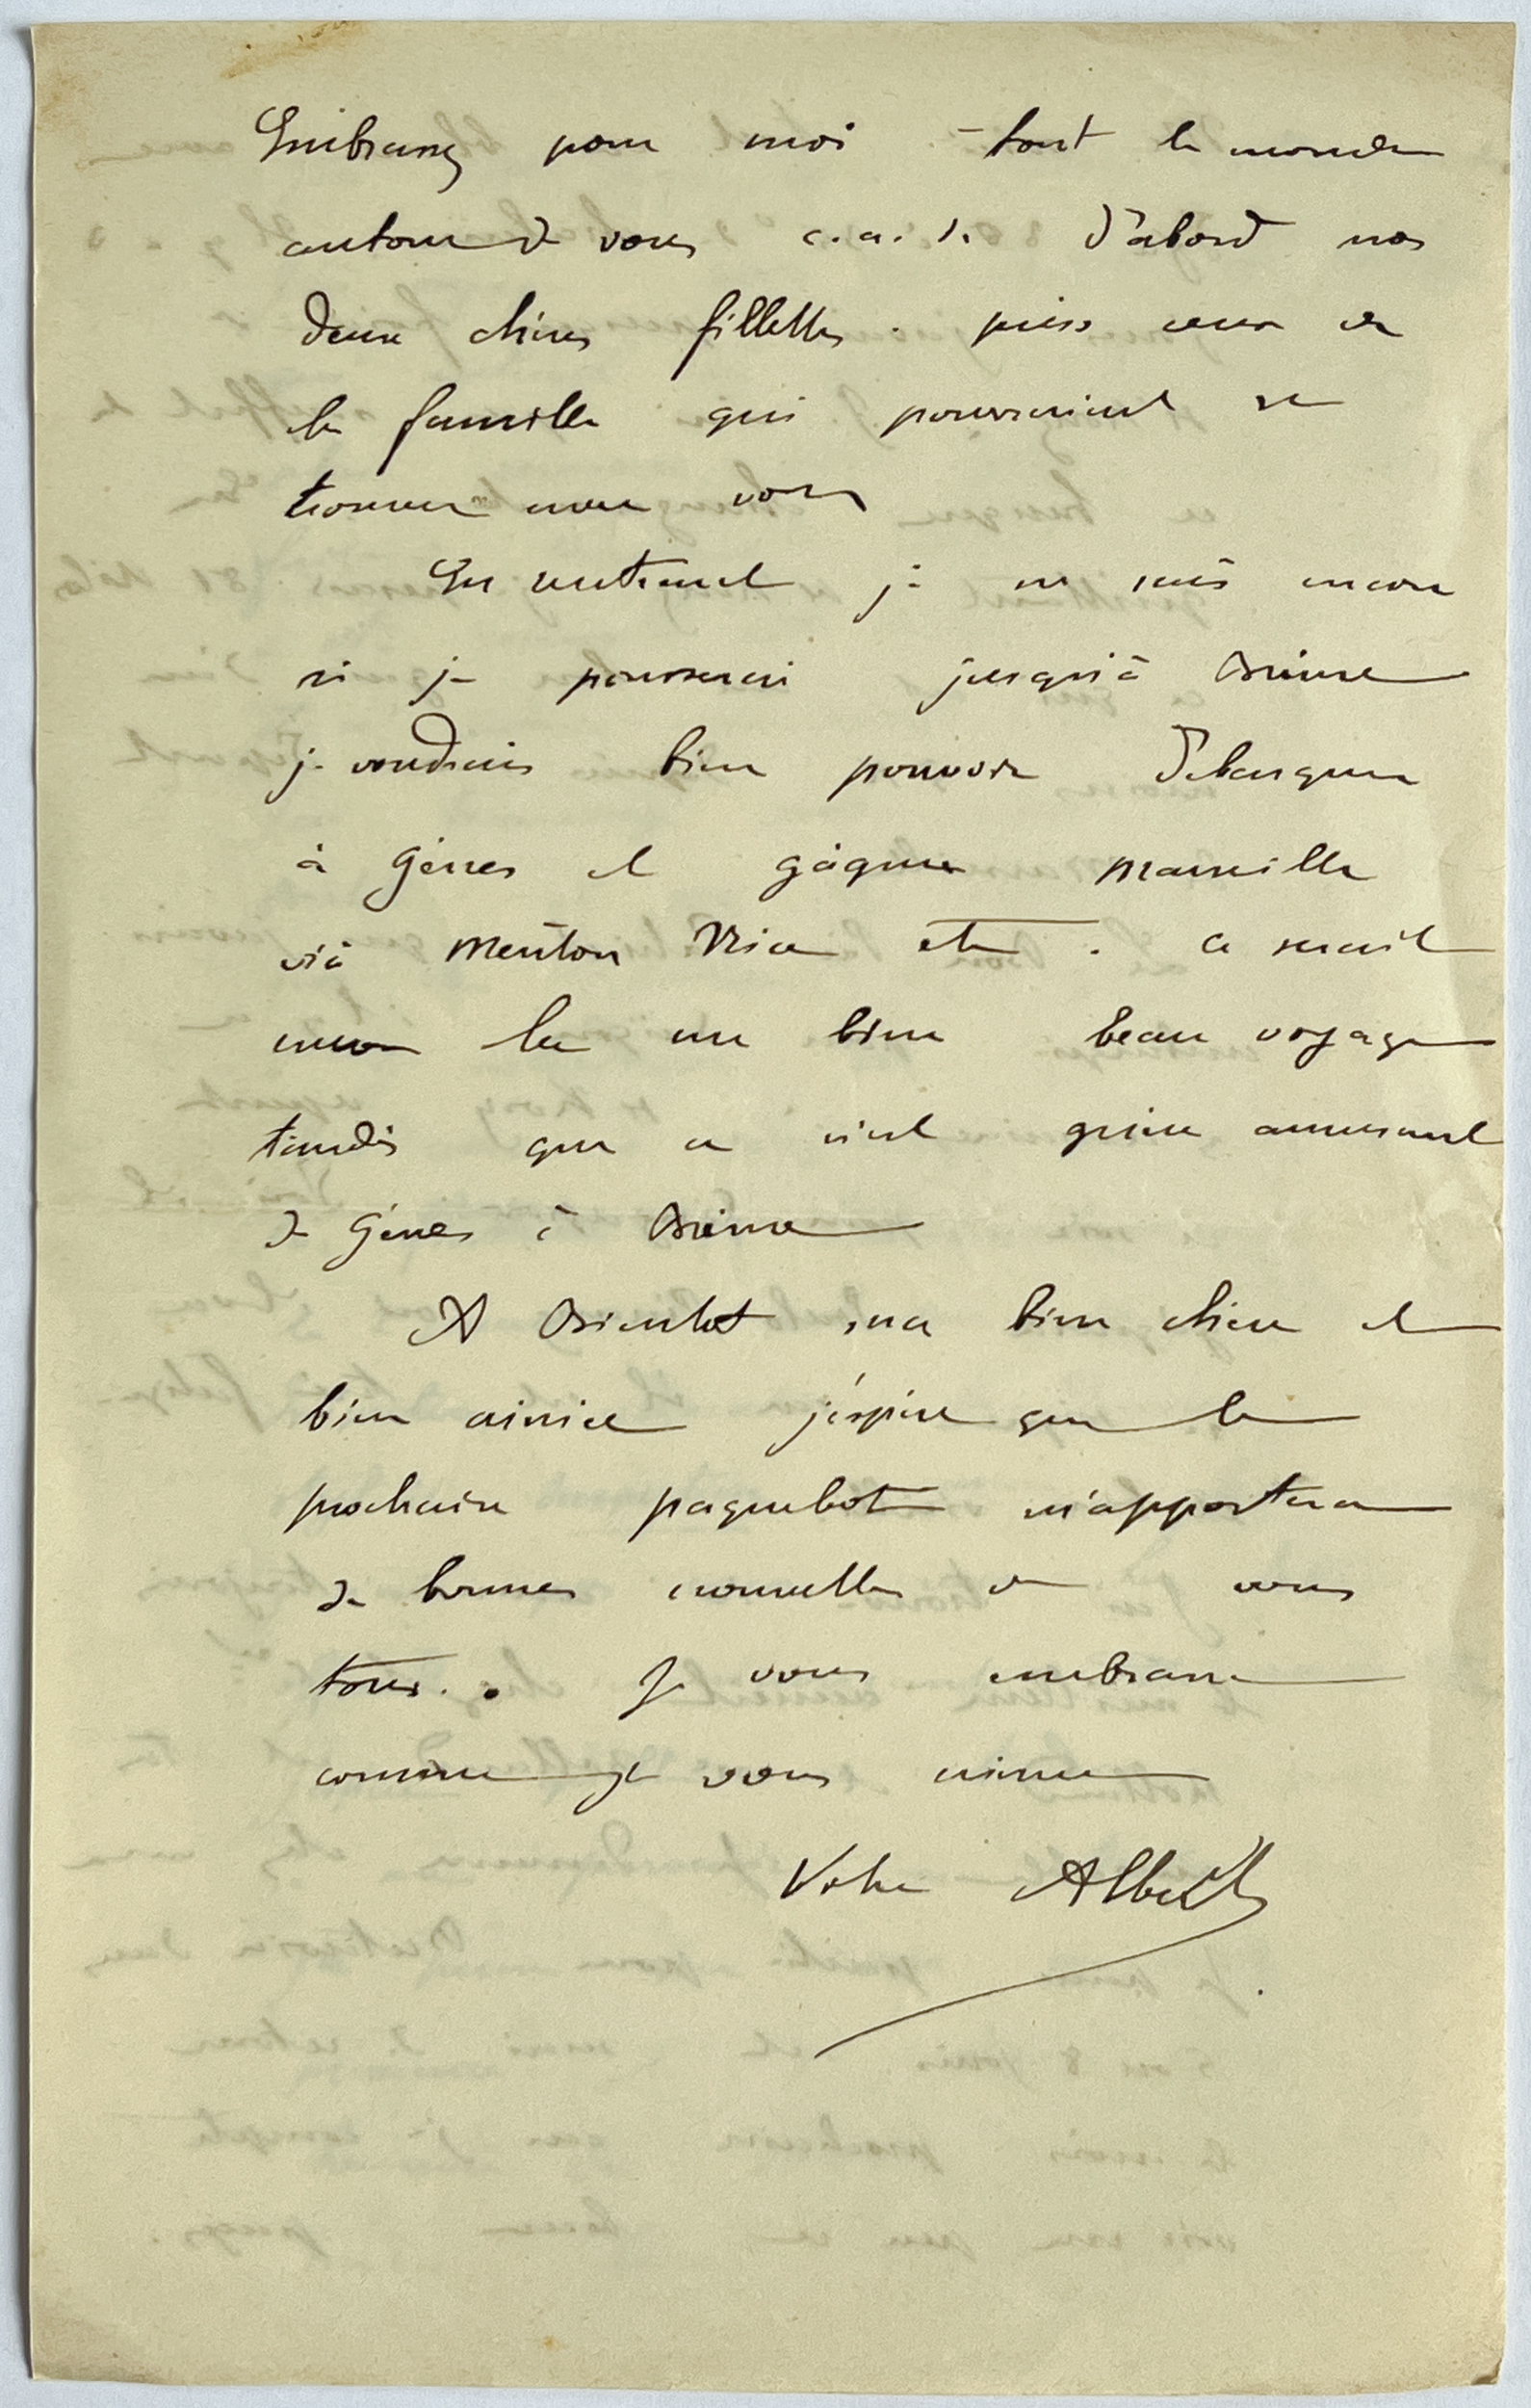 Embrassez pour moi tout le monde
autour de vous c.a.d. d'abord nos
deux chères fillettes. puis ceux de
la famille qui pourraient se
trouver avec vous
En rentrant je ne sais encore
si je pousserai jusqu'à Brême
je voudrais bien pouvoir débarquer
à Gênes et gagner Marseille
via Menton Nice etc. ce serait
encore là un bien beau voyage
tandis que ce n'est guère amusant
de Gênes à Brême
A Bientot ma bien chère et
bien aimée j'éspère que le
prochain paquebot m'apportera
de bonnes nouvelles de vous
tous. Je vous embrasse
comme je vous aime
Votre Albert